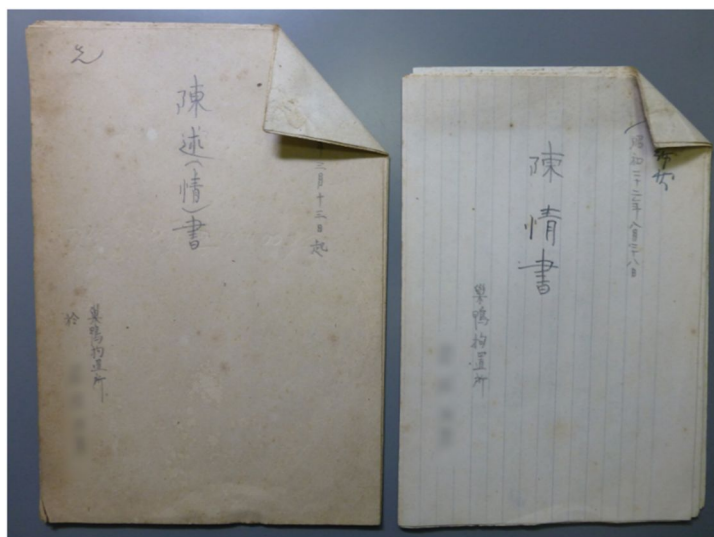 陳述(情)書
三月十三日起
於
巣鴨拘置所
陳情書
昭和二十二年八月二十八日
巣鴨拘置所